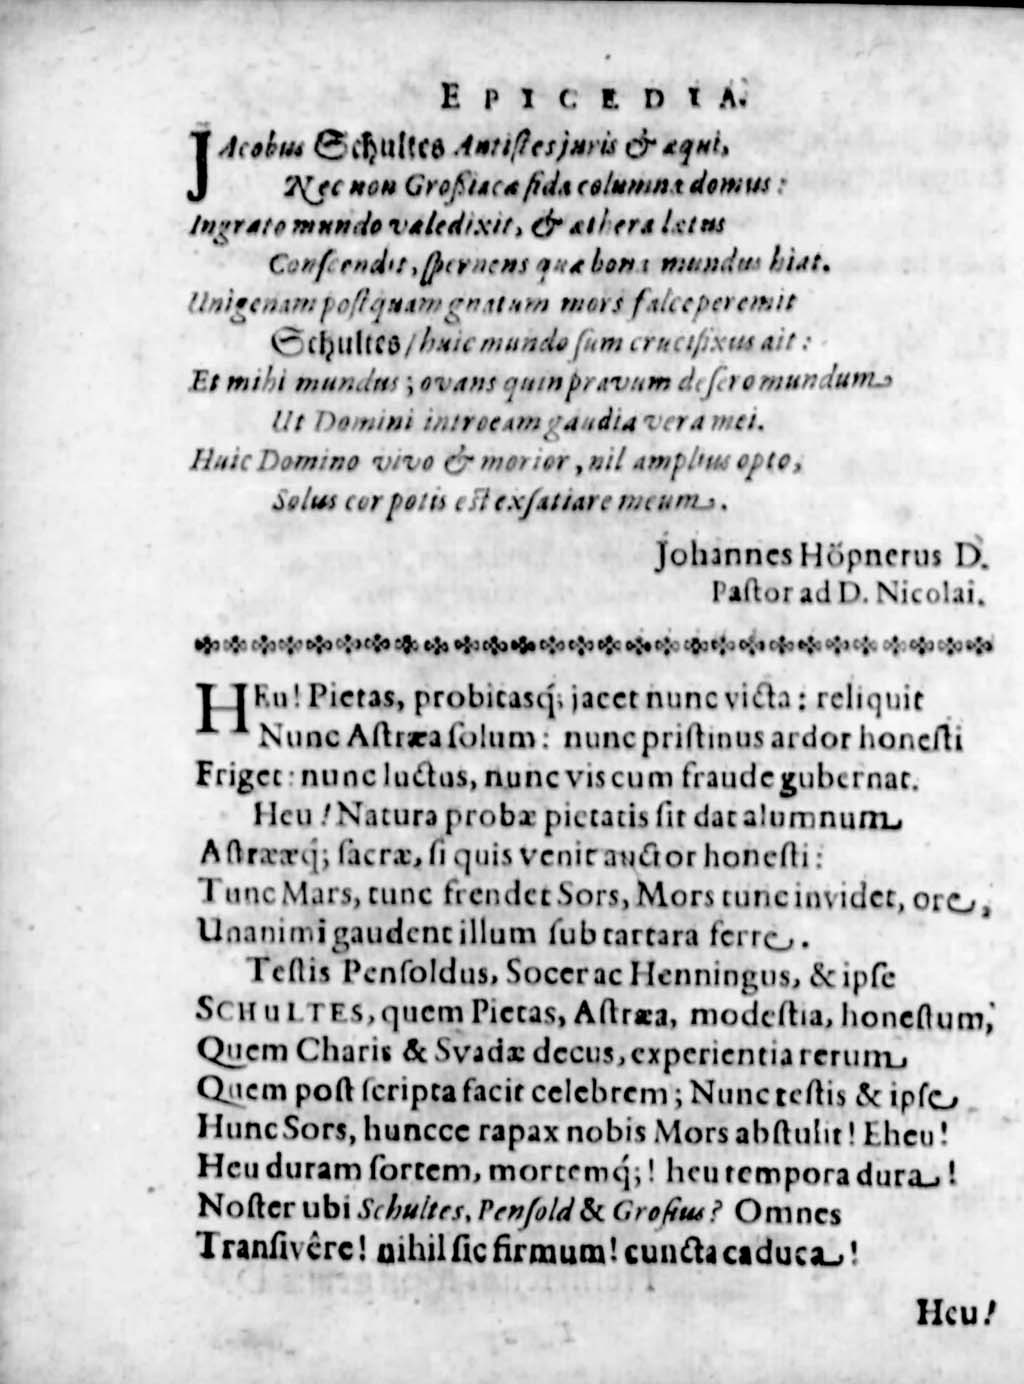 EPICEDIA.
JAcobus Schultes Antiſtes juris & æqui,
Nec non Groſſiacæ fida columna domus:
Ingrato mundo valedixit, & æthera lætus
Conſcendit, ſpernens quæ bona mundus hiat.
Unigenam poſtquam gnatum mors falce peremit
Schultes / huic mundo ſum crucifixus ait:
Et mihi mundus; ovans quin pravum deſero mundum
Ut Domini introeam gaudia vera mei.
Huic Domino vivo & morior, nil amplius opto,
Solus cor potis eſt exſatiare meum.
Johannes Höpnerus D.
Paſtor ad D. Nicolai.
HEu! Pietas, probitasq́; jacet nunc victa: reliquit
Nunc Aſtræa ſolum: nunc priſtinus ardor honeſti
Friget: nunc luctus, nunc vis cum fraude gubernat.
Heu! Natura probæ pietatis ſit dat alumnum
Aſtrææq́; ſacræ, ſi quis venit auctor honeſti:
Tunc Mars, tunc frendet Sors, Mors tunc invidet, ore,
Unanimi gaudent illum ſub tartara ferre.
Teſtis Penſoldus, Socer ac Henningus, & ipſe
SCHULTES, quem Pietas, Aſtræa, modeſtia, honeſtum,
Quem Charis & Svadæ decus, experientia rerum
Quem poſt ſcripta facit celebrem; Nunc teſtis & ipſe
Hunc Sors, huncce rapax nobis Mors abſtulit! Eheu!
Heu duram ſortem, mortemq́;! heu tempora dura!
Noſter ubi Schultes, Penſold & Groſius? Omnes
Tranſivêre! nihil ſic firmum! cuncta caduca!
Heu!